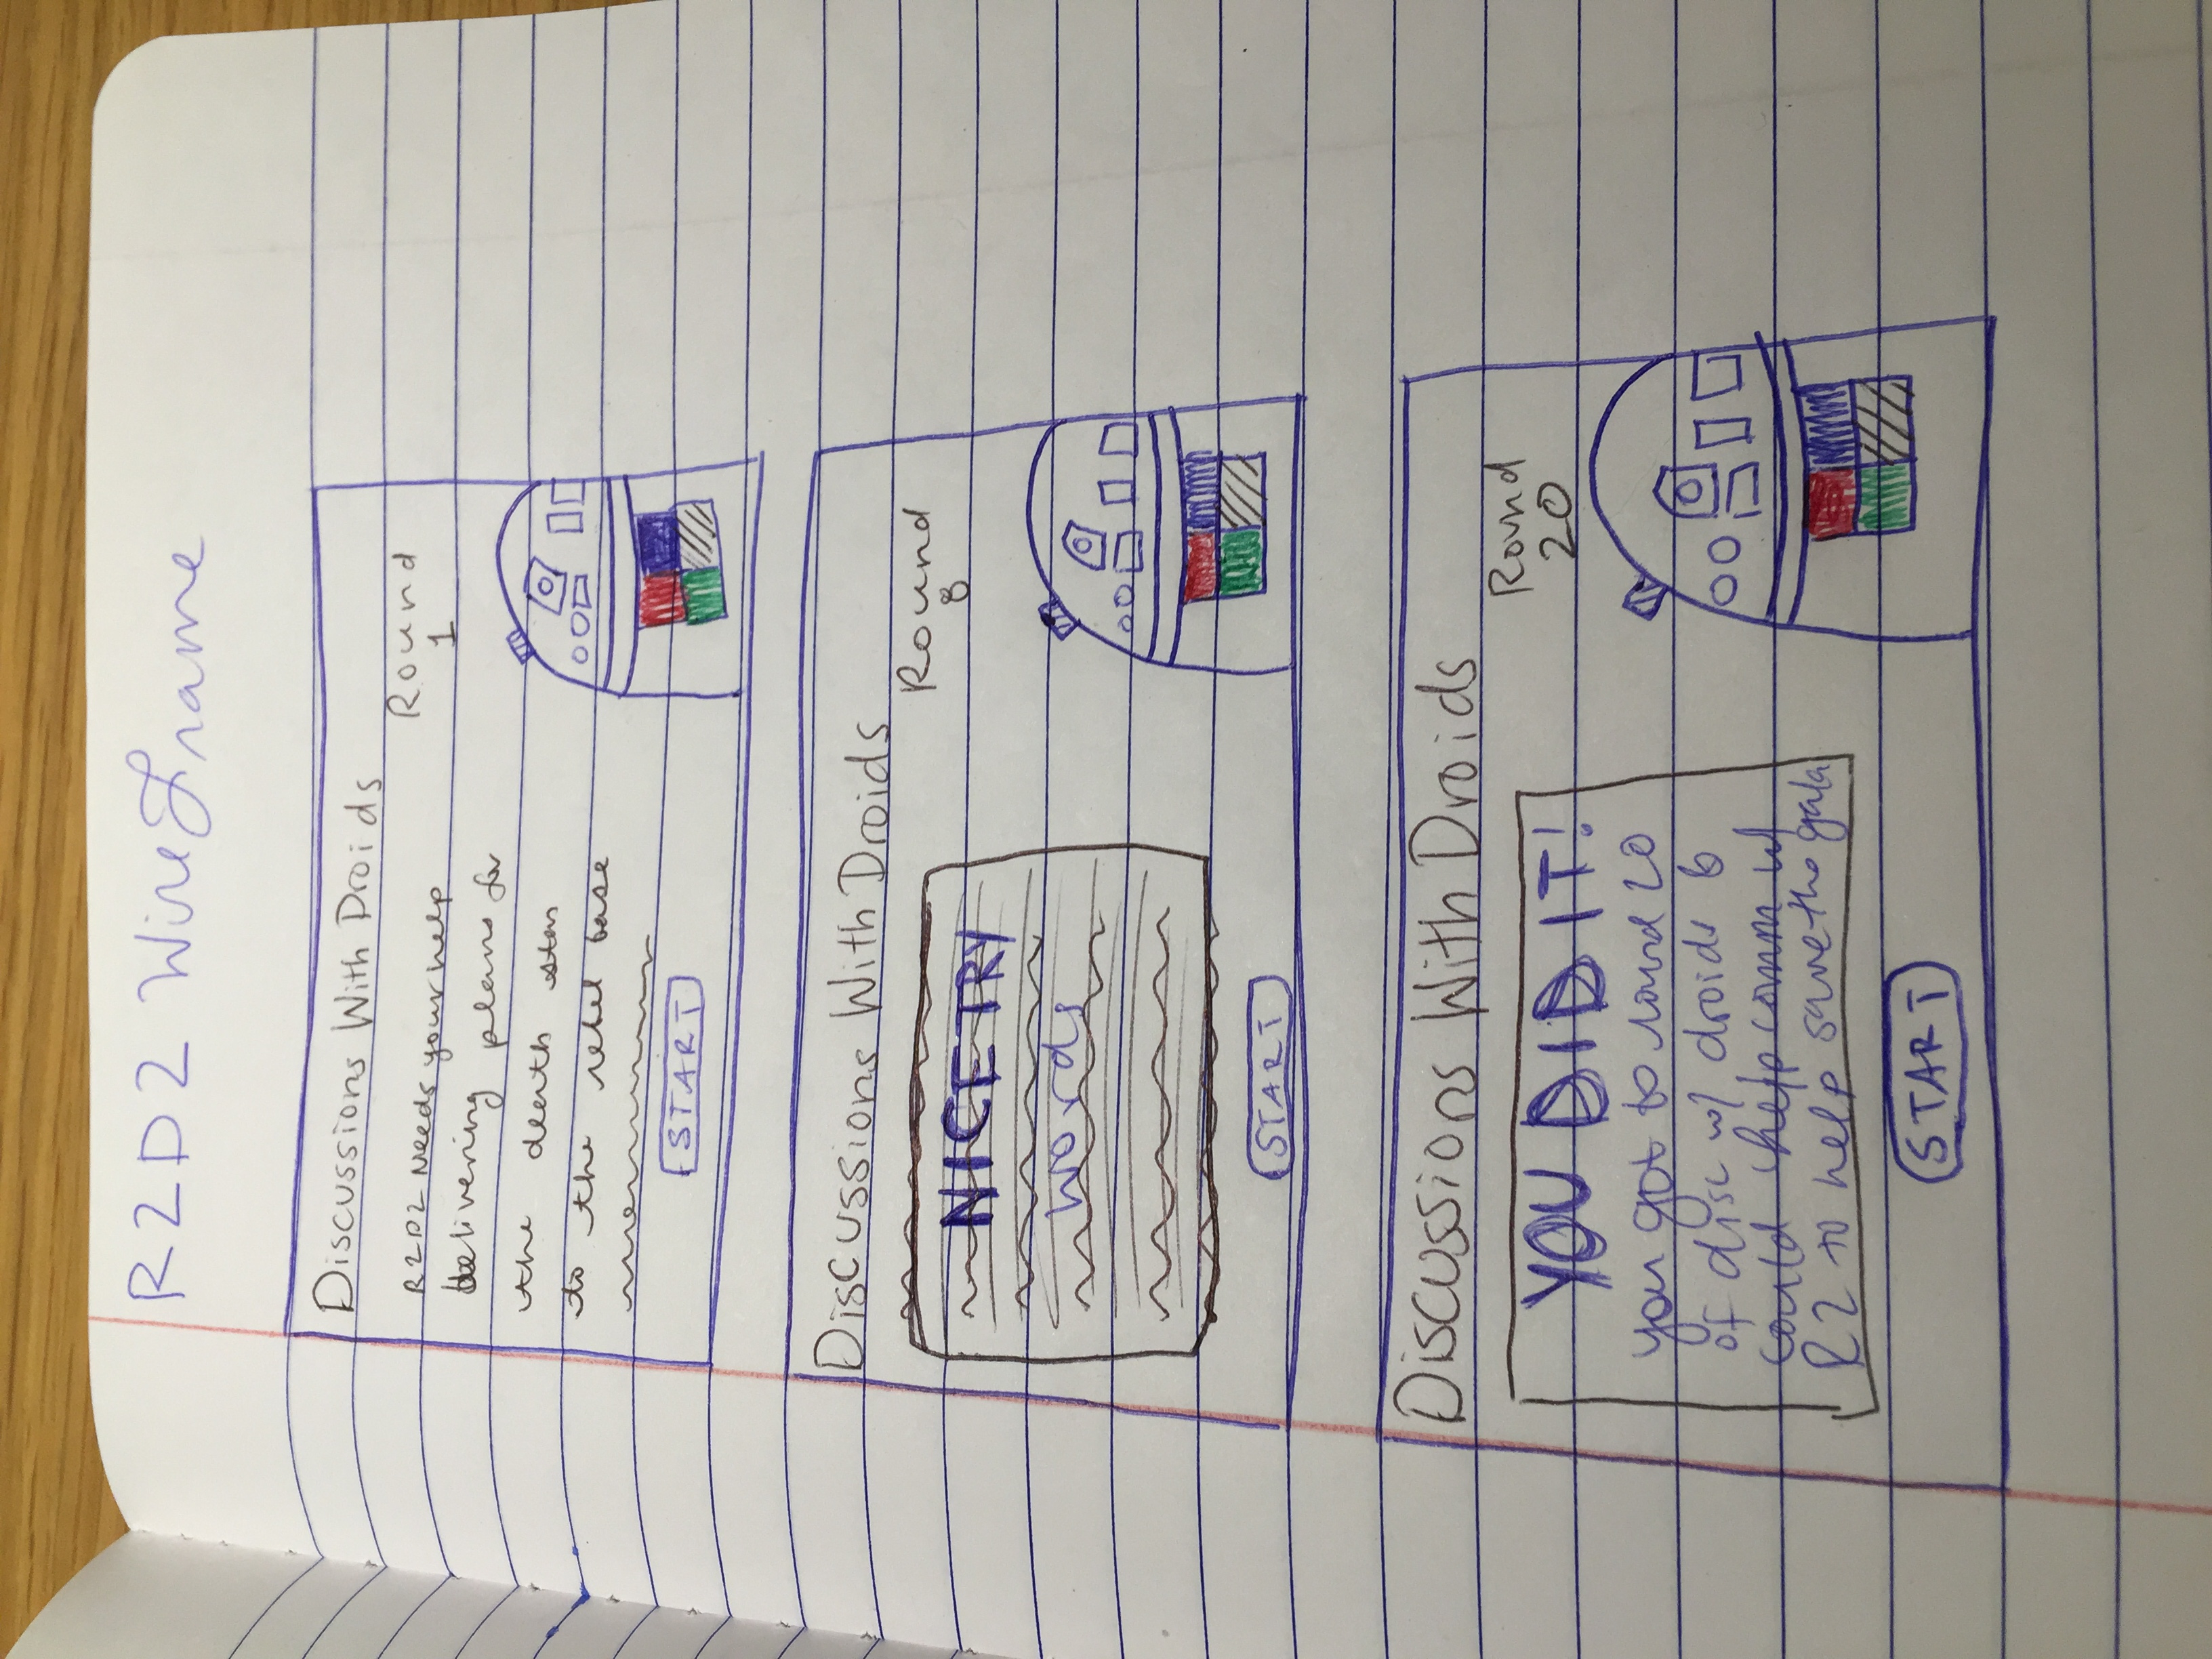 R2D2 Wire Frame
Discussions With Droids
Round
1
R2D2 Needs your help
delivering plans for
the death star
to the rebel base
START
Discussions With Droids
Round
8
NICE TRY
words
START
Discussions With Droids
Round
20
YOU DID IT!
you got to round 20
of disc w/ droids &
could help comm w/
R2 to help save the gala
START